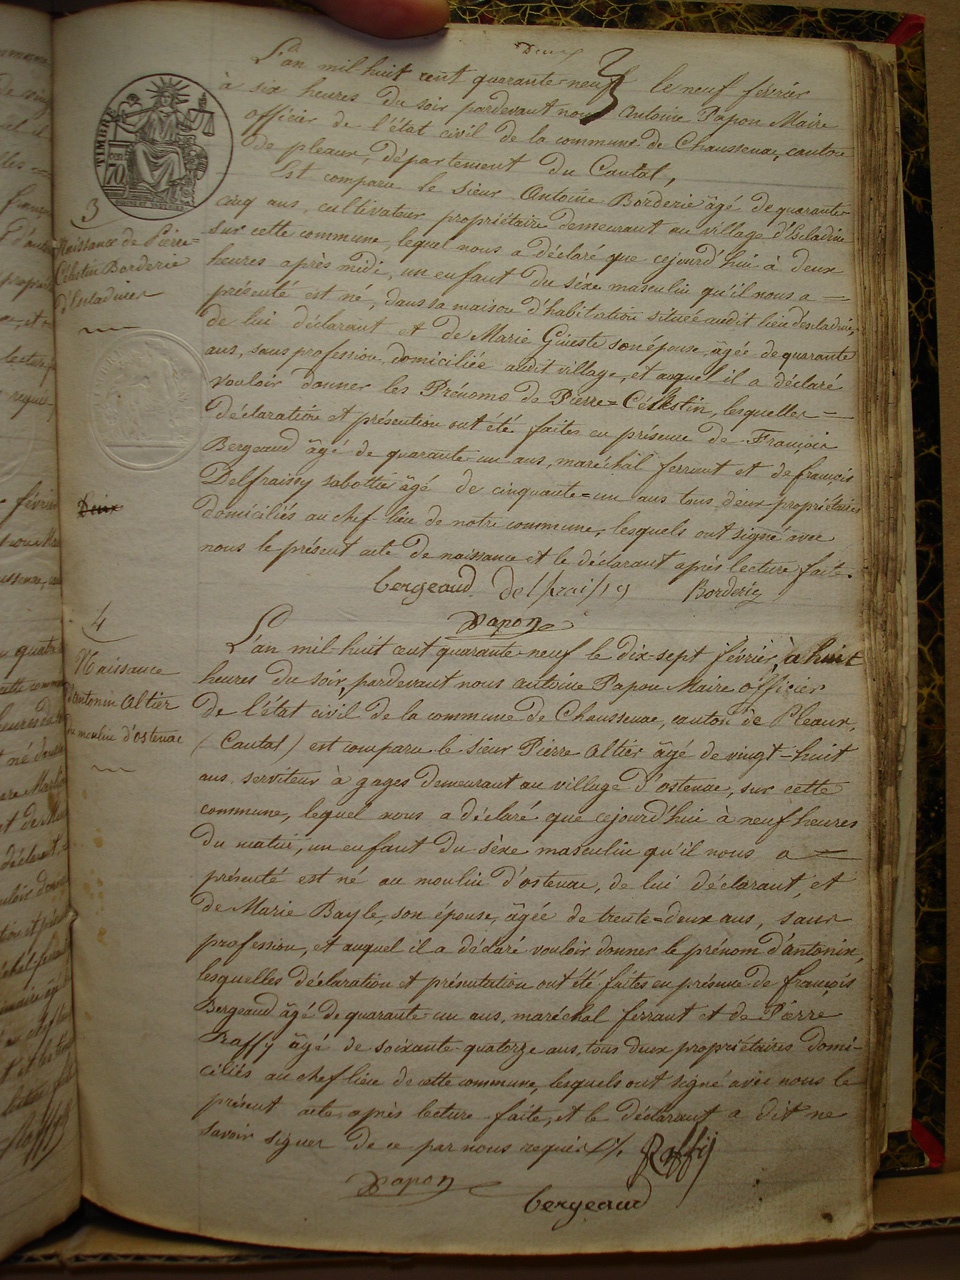 Deux
3
L'an mil huit cent quarante-neuf le neuf février
à six heures du soir pardevant nous Antoine Papon Maire
officier de l'état civil de la commune de Chaussenac, canton
de pleaux, département du Cantal,
Est comparu le sieur Antoine Borderie âgé de quarante-
cinq ans, cultivateur propriétaire demeurant au village d'Escladine
sur cette commune, lequel nous a déclaré que cejourd'hui à deux
heures après midi, un enfant du sèxe masculin qu'il nous a
présenté est né, dans sa maison d'habitation située audit lieu d'escladine,
de lui déclarant et de Marie Gineste son épouse, âgée de quarante
ans, sans profession, domiciliée audit village, et auquel il a déclaré
vouloir donner les Prénoms de Pierre=Célestin, lesquelles
déclaration et présention ont été faites en présence de François
Bergeaud âgé de quarante-un ans, maréchal ferrant et de françois
Delfraissy sabottier âgé de cinquante=un ans tous deux propriétaires
domiciliés au chef lieu de notre commune, lesquels ont signé avec
nous le présent acte de naissance et le déclarant après lecture faite.
bergeaud delfraissy Borderie
Papon
TIMBRE
70
3
Naissance de Pierre=
Célestin Borderie
d'Escladines
Deux
4
Naissance
d'Antonin Altier
du moulin d'ostenac
L'an mil-huit cent quarante-neuf le dix-sept février, à huit
heures du soir, pardevant nous antoine Papon Maire officier
de l'état civil de la commune de Chaussenac, canton de Pleaux,
(Cantal) est comparu le sieur Pierre Altier âgé de vingt-huit
ans, serviteur à gages demeurant au village d'ostenac, sur cette
commune, lequel nous a déclaré que cejourd'hui à neuf heures
du matin, un enfant du sèxe masculin qu'il nous a
présenté est né au moulin d'ostenac, de lui déclarant, et
de Marie Bayle, son épouse, âgée de trente=deux ans, sans
profession, et auquel il a déclaré vouloir donner le prénom d'antonin,
lesquelles déclaration et présentation ont été faites en présence de françois
Bergeaud âgé de quarante un ans, maréchal ferrant et de Pierre
Raffy âgé de soixante-quatorze ans, tous deux propriétaires domi-
ciliés au chef lieu de cette commune, lesquels ont signé avec nous le
présent acte, après lecture faite, et le déclarant a dit ne
savoir signer de ce par nous requis.
Raffy
Papon
bergeaud